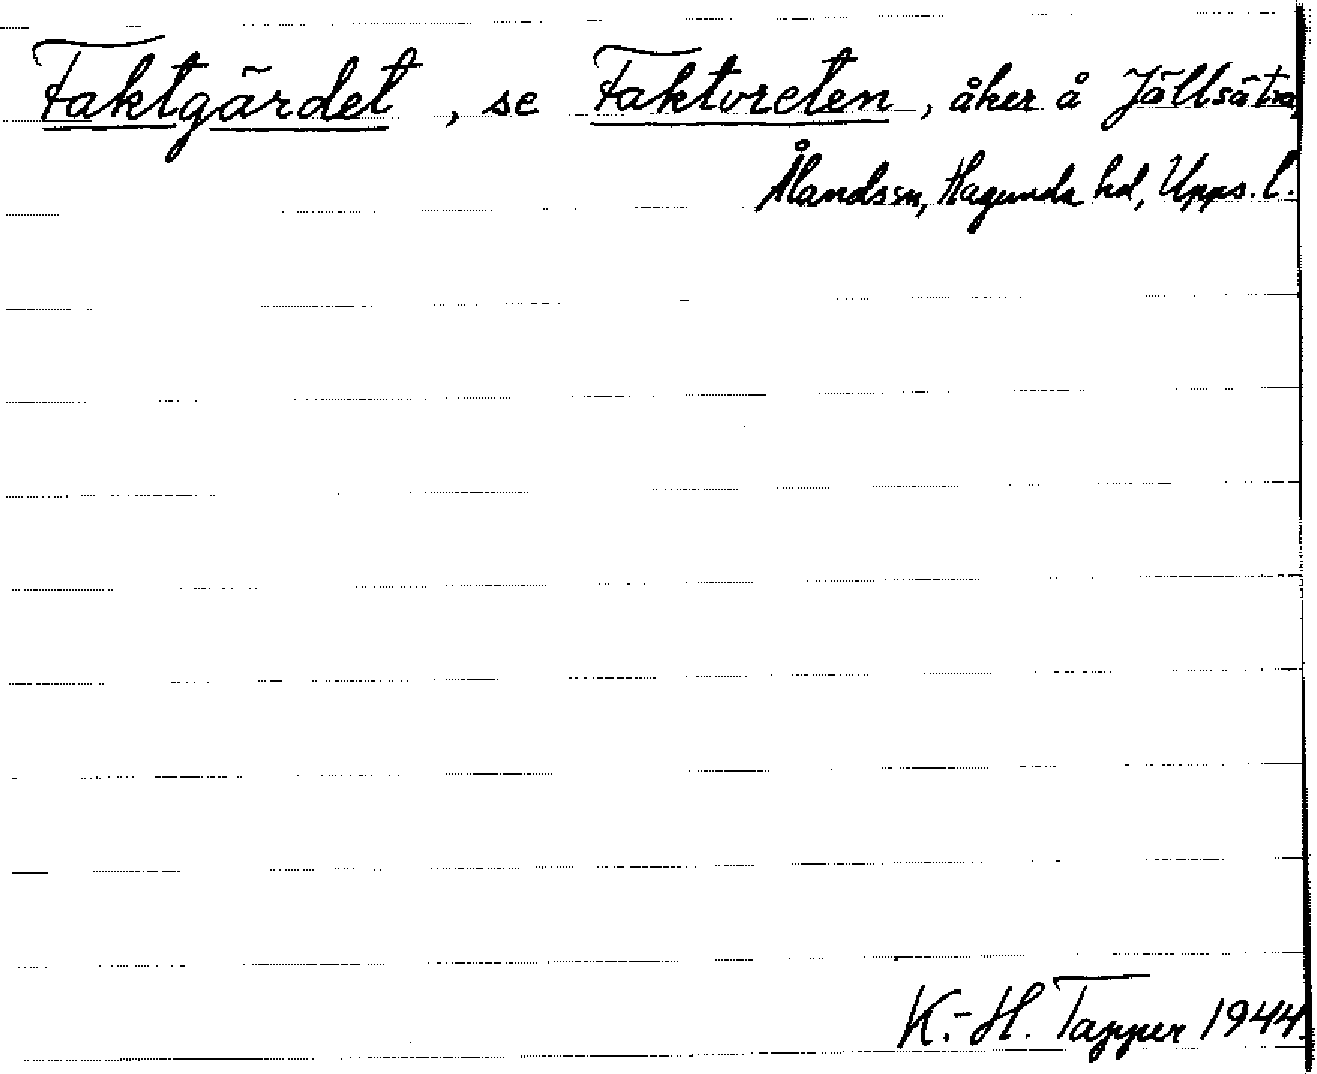 Faktgärdet, se Faktoreten, åker å Jällsätra,
Ålands sn, Hagunda hd, Upps. l.
K.-H. Tapper 1944.